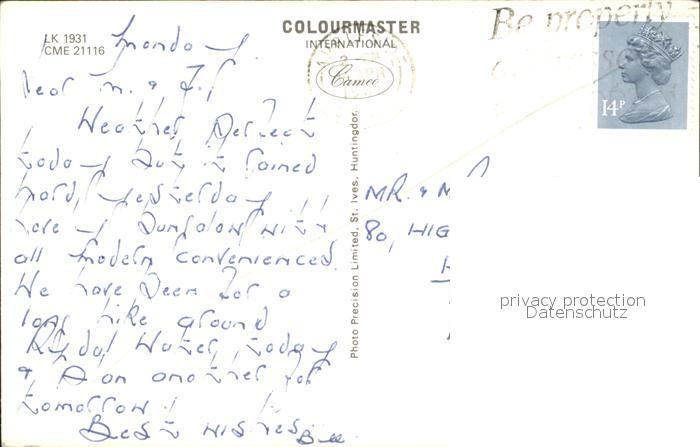 LK 1931
CME 21116
COLOURMASTER
INTERNATIONAL
Cameo
Be properly
14P
Monday
Dear M. & F.
Weather Perfect
today but it rained
hard, yesterday!!
lovely bungalow with
all modern convenienced.
We have been for a
long hike around
Rydal Water, today
& plan another for
tomorrow!
Best wishes
Photo Precision Limited, St. Ives, Huntingdon.
MR. & M
80, HIG
privacy protection
Datenschutz